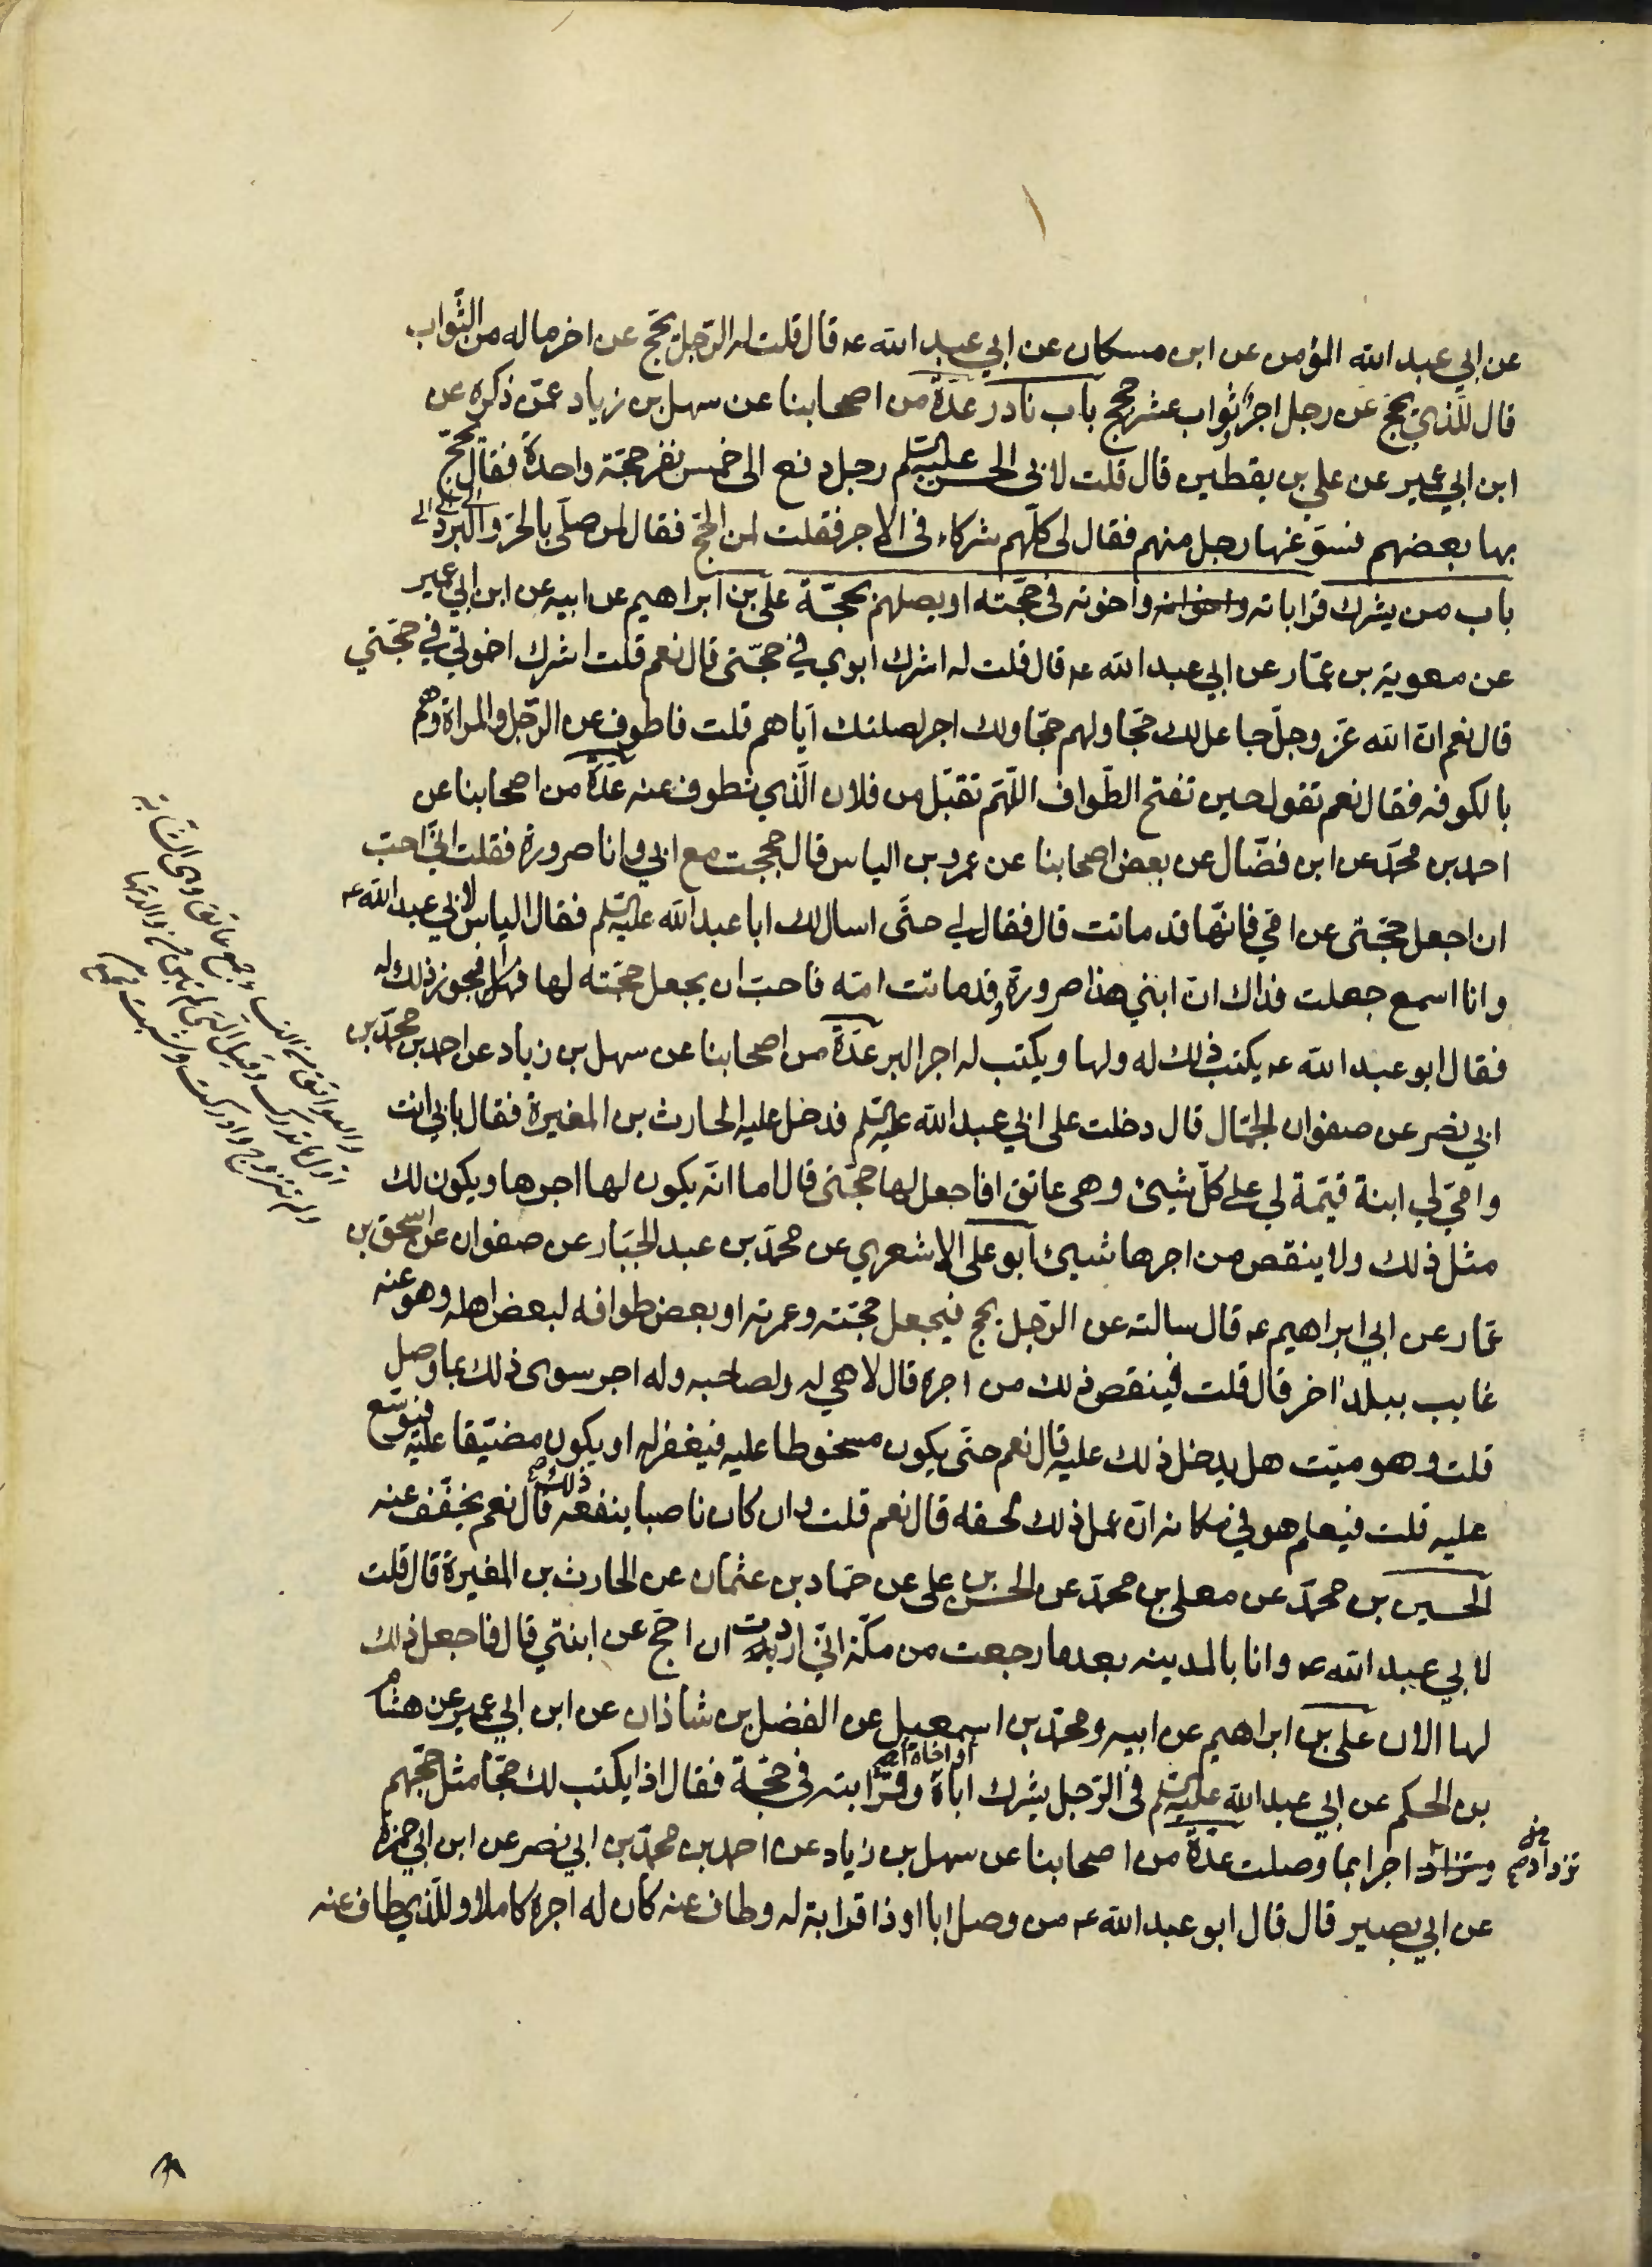 عن ابي عبد الله المؤمن عن ابن مسكان عن ابي عبد الله عه قال قلت له الرّجل يحجّ عن اخر ما له من الثّواب
قال للّذي يحجّ عن رجل اجر وثواب عشر حجج باب نادر عدّة من اصحابنا عن سهل بن زياد عمّن ذكره عن
ابن ابي عمير عن علي بن يقطين قال قلت لابي الحسن عليه السلم رجل دفع الى خمس نفر حجّة واحدة فقال يحجّ
بها بعضهم فسوّغها رجل منهم فقال لي كلّهم شركاء في الاجر فقلت لمن الحجّ فقال لمن صلّى بالحرّ والبرد
باب من يشرك قراباته واخوانه واخوته في حجّته او يصلهم بحجّة علي بن ابراهيم عن ابيه عن ابن ابي عمير
عن معوية بن عمّار عن ابي عبد الله عه قال قلت له اشرك ابوي في حجّتي قال نعم قلت اشرك اخوتي في حجّتي
قال نعم انّ الله عزّ وجلّ جاعل لك حجّا ولهم حجّا ولك اجر لصلتك ايّاهم قلت فاطوف عن الرّجل والمراة وهم
بالكوفه فقال نعم تقول حين تفتح الطّواف اللّهمّ تقبّل من فلان الّذي تطوف عنه عدّة من اصحابنا عن
احمد بن محمّد عن ابن فضّال عن بعض اصحابنا عن عمرو بن الياس قال حججت مع ابي وانا صرورة فقلت انّي احبّ
ان اجعل حجّتي عن امّي فانّها قد ماتت قال فقال لي حتّى اسال لك ابا عبد الله عليه السلم فقال الياس لابي عبد الله عه
وانا اسمع جعلت فداك انّ ابني هذا صرورة وقد ماتت امّه فاحبّ ان يجعل حجّته لها افيجوز ذلك له
فقال ابو عبد الله عه يكتب ذلك له ولها ويكتب له اجر البر عدّة من اصحابنا عن سهل بن زياد عن احمد بن محمّد بن
ابي نصر عن صفوان الجمّال قال دخلت على ابي عبد الله عليه السلم فدخل عليه الحارث بن المغيرة فقال بابي انت
وامّي لي ابنة قيّمة لي على كلّ شيئ وهي عاتق افاجعل لها حجّتي قال اما انّه يكون لها اجرها ويكون لك
مثل ذلك ولا ينقص من اجرها شيئ ابو علي الاشعري عن محمّد بن عبد الجبّار عن صفوان عن اسحق بن
عمّار عن ابي ابراهيم عه قال سالته عن الرّجل يحج فيجعل حجّته وعمرته او بعض طوافه لبعض اهله وهو عنه
غايب ببلد اخر قال قلت فينقص ذلك من اجره قال لا هي له ولصاحبه وله اجر سوى ذلك بما وصل
قلت وهو ميّت هل يدخل ذلك عليه قال نعم حتّى يكون مسخوطا عليه فيغفر له او يكون مضيّقا عليه فيوسّع
عليه قلت فيعلم هو في مكانه انّ عمل ذلك لحقه قال نعم قلت وان كان ناصبا ينفعه ذلك قال نعم يخفّف عنه
الحسين بن محمّد عن معلى بن محمّد عن الحسن بن علي عن حمّاد بن عثمان عن الحارث بن المغيرة قال قلت
لابي عبد الله عه وانا بالمدينه بعد ما رجعت من مكّة انّي اردت ان احجّ عن ابنتي قال فاجعل ذلك
لها الان علي بن ابراهيم عن ابيه ومحمّد بن اسمعيل عن الفضل بن شاذان عن ابن ابي عمير عن هشام
بن الحكم عن ابي عبد الله عليه السلم في الرّجل يشرك اباه او اخاه وقرابته في حجّة فقال اذا يكتب لك حجّا مثل حجّهم
وتزاد اجرا بما وصلت عدّة من اصحابنا عن سهل بن زياد عن احمد بن محمّد بن ابي نصر عن ابن ابي حمزة
تزداد
عن ابي بصير قال قال ابو عبد الله عه من وصل ابا او ذا قرابة له وطاف عنه كان له اجره كاملا وللّذي طاف عنه